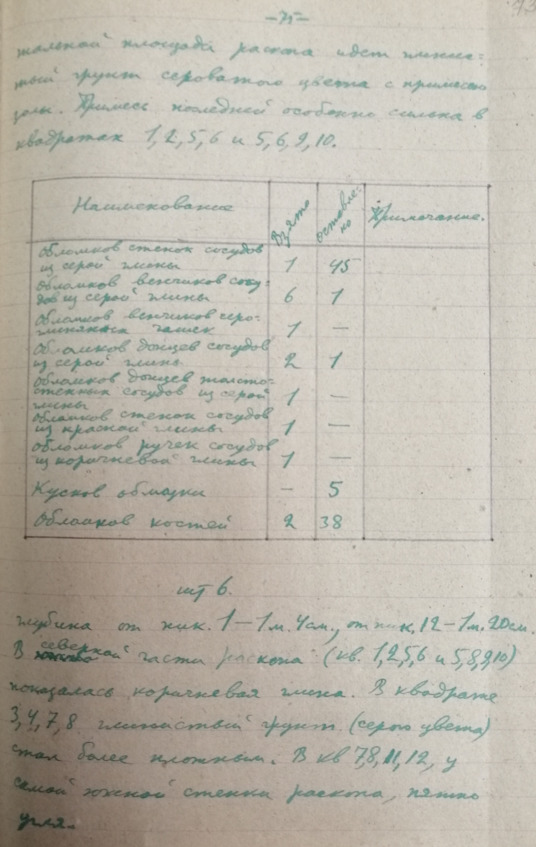 -75-
тальной площади раскопа идет глинис-
тый грунт сероватого цвета с примесью
золы. Примесь последней особенно сильна в
квадратах 1,2,5,6 и 5,6,9,10.
Наименование
Взято
оставле-
но
Примечание.
Обломков стенок сосудов
из серой глины 1 45
Обломков венчиков сосу-
дов из серой глины 6 1
Обломков венчиков серо-
глиняных чашек 1 —
Обломков донцев сосудов
из серой глины 2 1
Обломков донцев толсто-
стенных сосудов из серой
глины 1 —
Обломков стенок сосудов
из красной глины 1 —
Обломков ручек сосудов
из коричневой глины 1 —
Кусков обмазки — 5
Обломков костей 2 38
шт 6.
Глубина от пик. 1 — 1 м. 4 см., от пик. 12 — 1 м. 20 см.
В северной части раскопа (кв. 1,2,5,6 и 5,8,9,10)
показалась коричневая глина. В квадрате
3,4,7,8 глинистый грунт (серого цвета)
стал более плотным. В кв 7,8,11,12, у
самой южной стенки раскопа, пятно
угля.